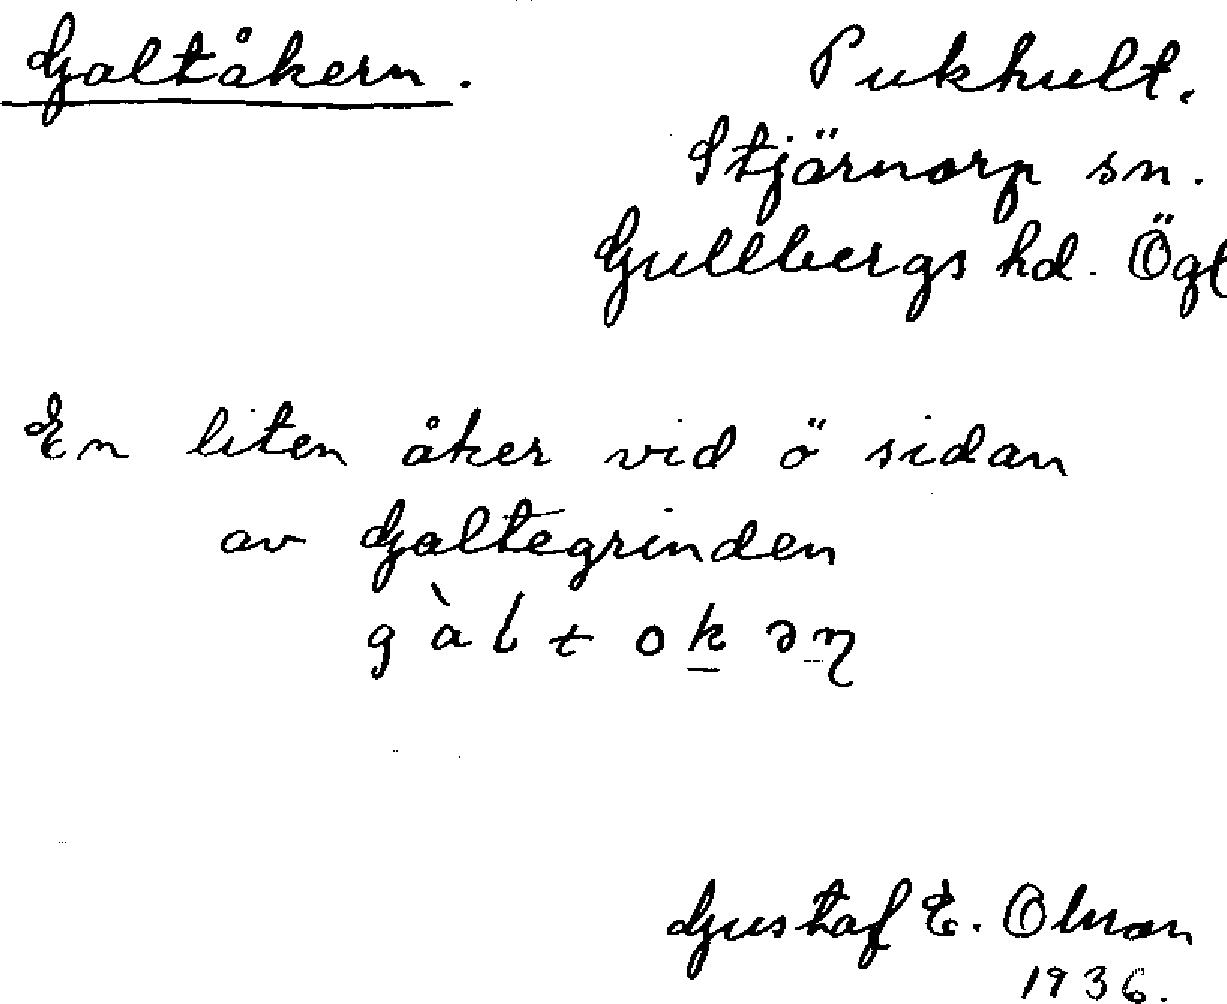 Galtåkern.
Pukhult.
Stjärnorp sn.
Gullbergs hd. Ögl
En liten åker vid ö sidan
av Galtegrinden
g à l t o k ə η
Gustaf E. Olson
1936.